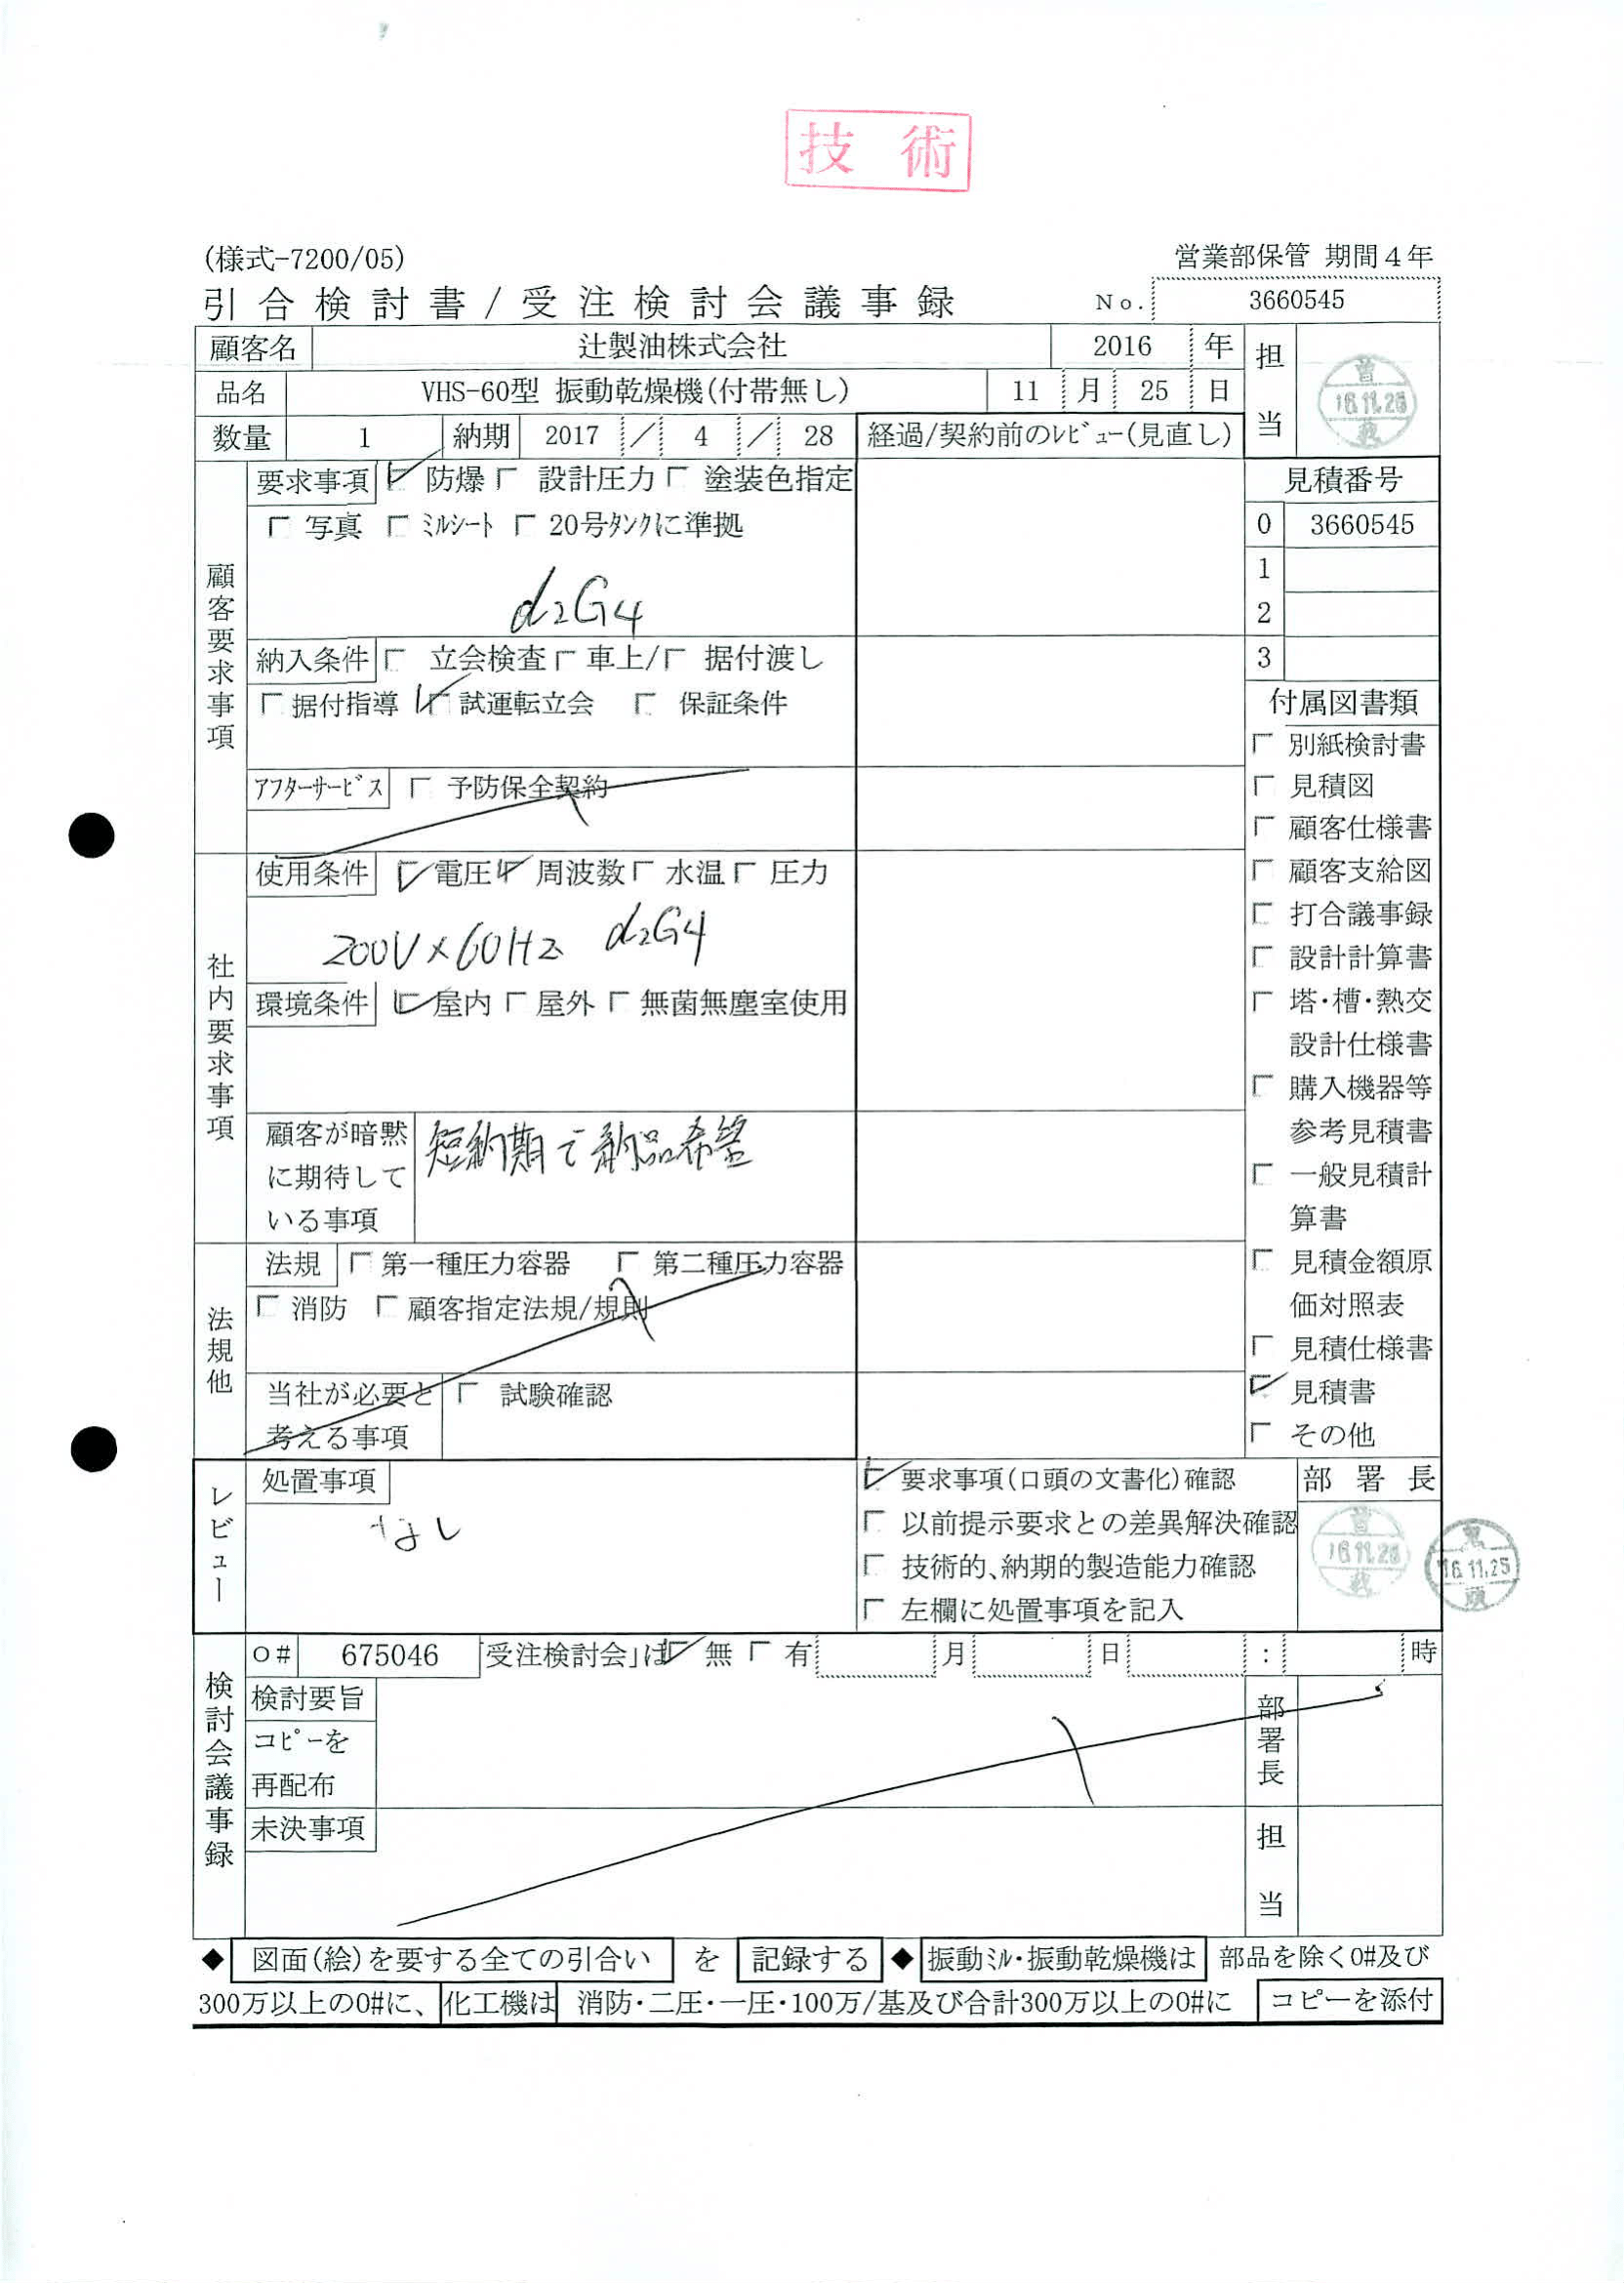 技 術
(様式-7200/05)
営業部保管 期間4年
引合検討書/受注検討会議事録
No. 3660545
顧客名 辻製油株式会社 2016 年
品名 VHS-60型 振動乾燥機(付帯無し) 11 月 25 日
担当
数量 1 納期 2017 / 4 / 28 経過/契約前のレビュー(見直し)
顧客要求事項
要求事項 防爆 設計圧力 塗装色指定
写真 ミルシート 20号タンクに準拠
d2G4
納入条件 立会検査 車上/ 据付渡し
据付指導 試運転立会 保証条件
アフターサービス 予防保全契約
社内要求事項
使用条件 電圧 周波数 水温 圧力
200V×60Hz d2G4
環境条件 屋内 屋外 無菌無塵室使用
顧客が暗黙
に期待して
いる事項
短納期で納品希望
法規他
法規 第一種圧力容器 第二種圧力容器
消防 顧客指定法規/規則
当社が必要と
考える事項
試験確認
見積番号
0 3660545
1
2
3
付属図書類
別紙検討書
見積図
顧客仕様書
顧客支給図
打合議事録
設計計算書
塔・槽・熱交
設計仕様書
購入機器等
参考見積書
一般見積計
算書
見積金額原
価対照表
見積仕様書
見積書
その他
レビュー
処置事項
なし
要求事項(口頭の文書化)確認
以前提示要求との差異解決確認
技術的、納期的製造能力確認
左欄に処置事項を記入
部署長
16.11.25
検討会議事録
O# 675046 「受注検討会」は 無 有 月 日 : 時
検討要旨
コピーを
再配布
未決事項
部署長
担当
◆ 図面(絵)を要する全ての引合い を 記録する ◆ 振動ミル・振動乾燥機は 部品を除くO#及び
300万以上のO#に、 化工機は 消防・二圧・一圧・100万/基及び合計300万以上のO#に コピーを添付